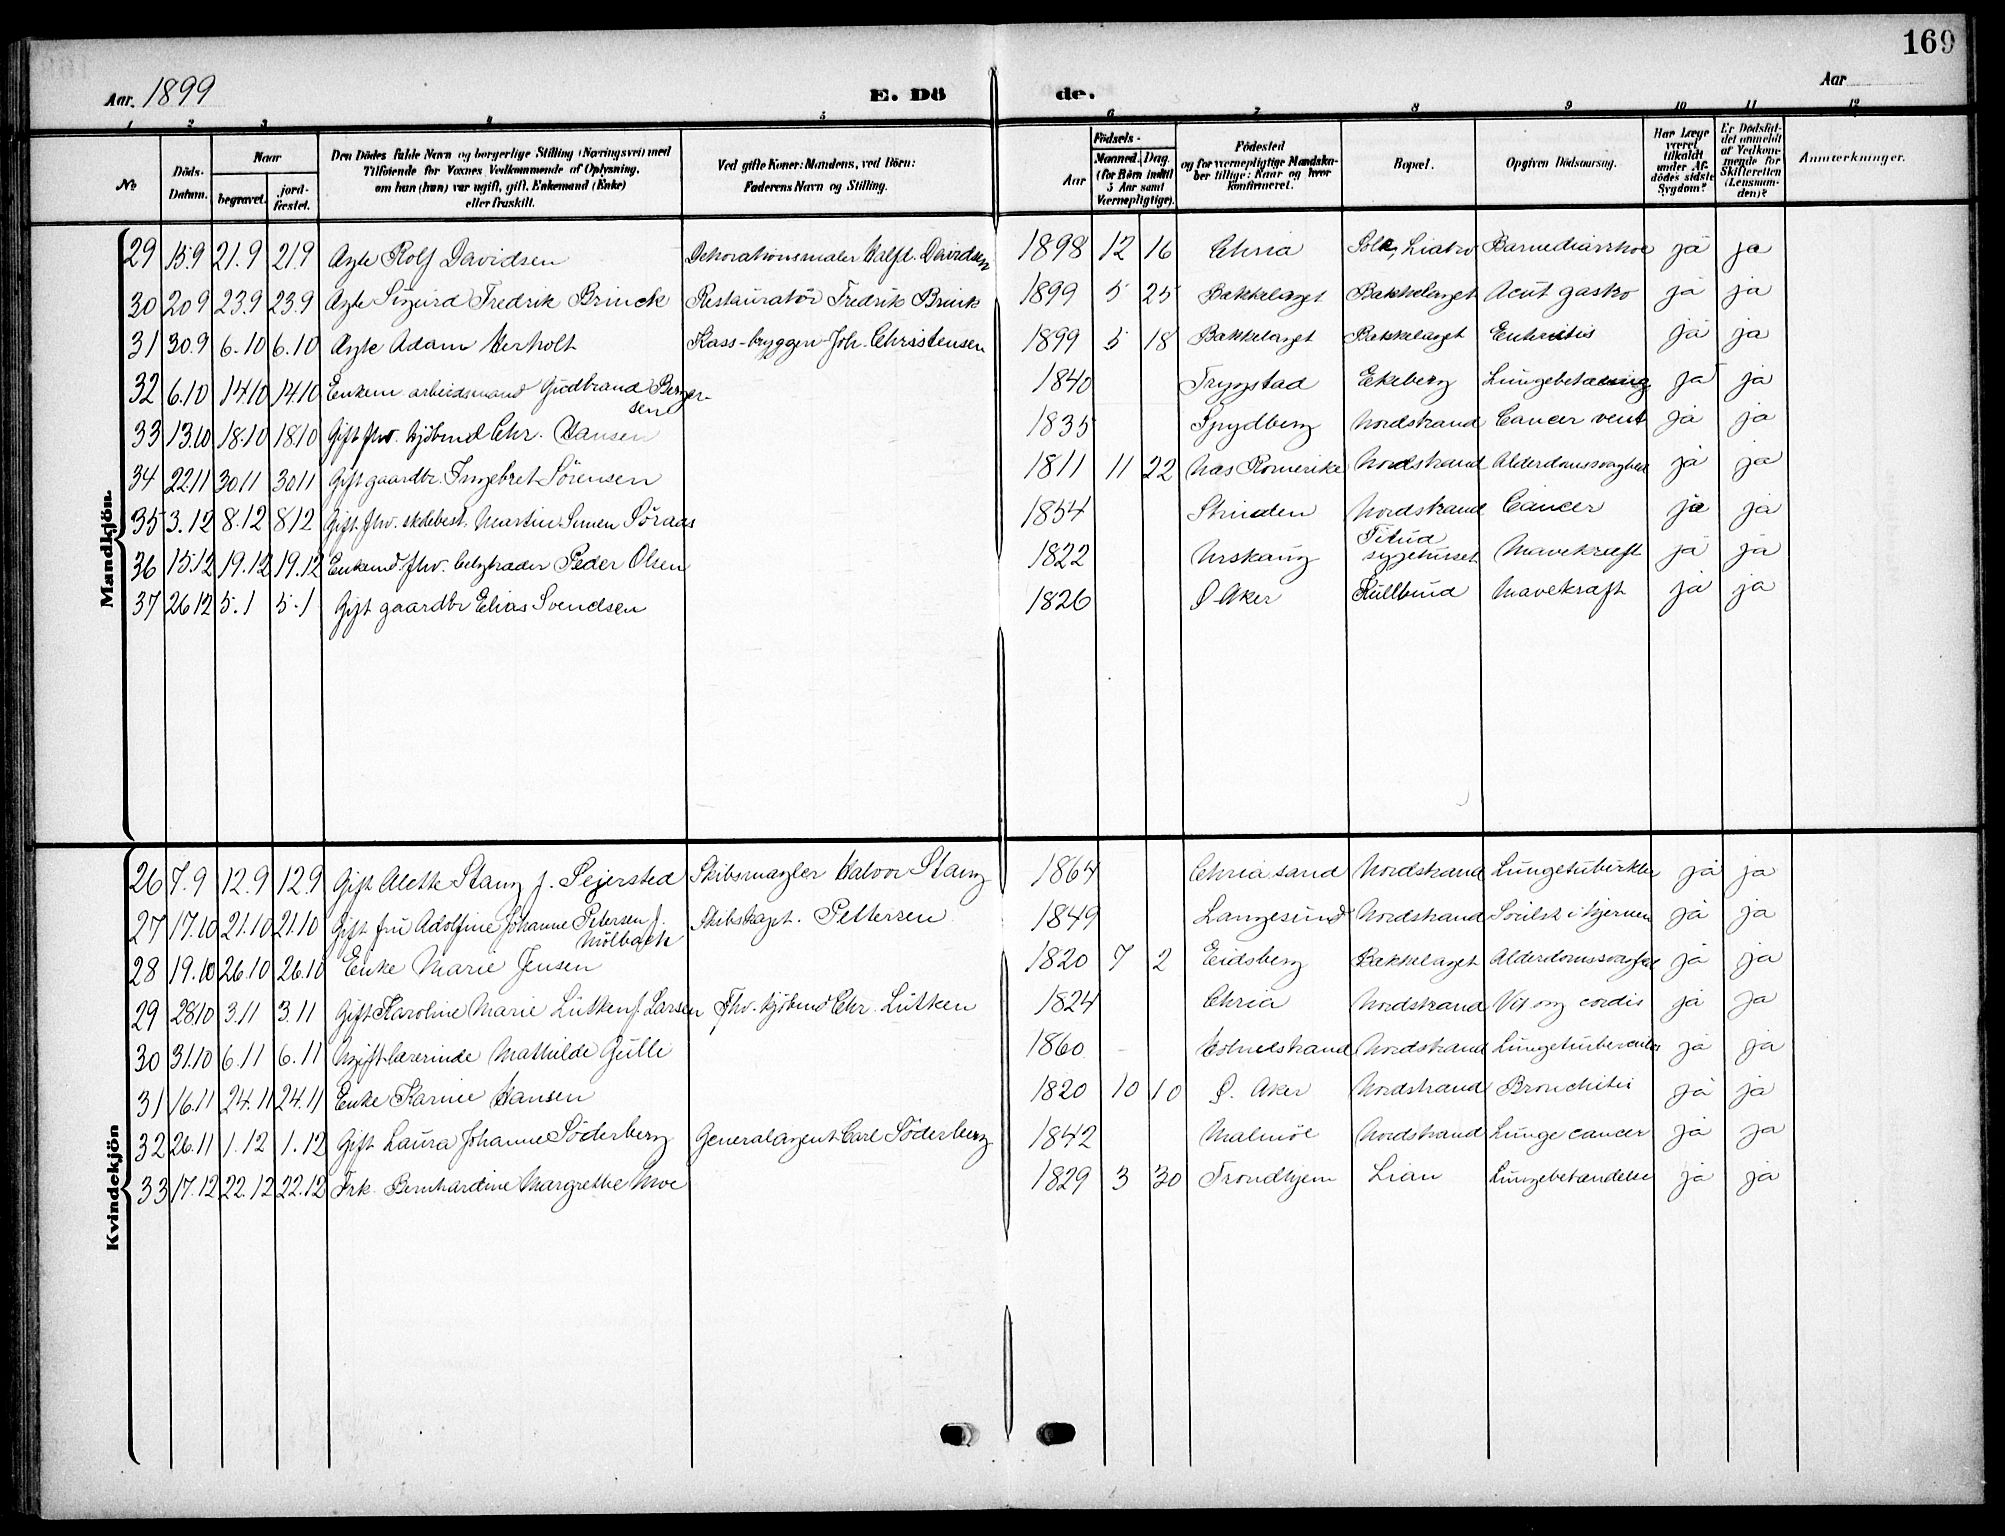 169
Aar. 1899
E. Dö de.
Aar
1 2 3 4 5 6 7 8 9 10 11 12
№
Döds-Datum.
Naar
begravet.
jord-fæstet.
Den Dödes fulde Navn og borgerlige Stilling (Næringsvei) med
Tilföiende for Voxnes Vedkommende af Oplysning,
om han (hun) var ugift, gift, Enkemand (Enke)
eller fraskilt.
Ved gifte Koner: Mandens, ved Börn:
Faderens Navn og Stilling.
Födsels-
Aar
Maaned. Dag.
(for Börn indtil
5 Aar samt
Værnepligtige).
Födested
og for værnepligtige Mandska-
ber tillige: Naar og hvor
konfirmeret.
Bopæl.
Opgiven Dödsaarsag.
Har Læge
været
tilkaldt
under Af-
dödes sidste
Sygdom?
Er Dödsfal-
det anmeldt
af Vedkom-
mende for
Skifteretten
(Lensman-
den)?
Anmærkninger.
Mandkjön.
29 15.9 21.9 21.9 Ægte Rolf Davidsen Dekorationsmaler Halfd. Davidsen 1898 12 16 Chria Liabro Barnediarrhoe ja ja
30 20.9 23.9 23.9 Ægte Sigurd Fredrik Brinck Restauratör Fredrik Brink 1899 5 25 Bækkelaget Bækkelaget Acut gastro ja ja
31 30.9 6.10 6.10 Ægte Adam Herholt Kass-brygger Joh. Christensen 1899 5 18 Bækkelaget Bækkelaget Enteritis ja ja
32 6.10 14.10 14.10 Enkem arbeidsmand Gudbrand Berger-
sen 1840 Trygstad Ekeberg ja ja
33 13.10 18.10 18.10 Gift fhv. kjöbmd Chr. Hansen 1835 Spydberg Nordstrand Cancer vent ja ja
34 22.11 30.11 30.11 Gift gaardbr. Ingebret Sörensen 1811 11 22 Næs Romerike Nordstrand Alderdomssvaghed ja ja
35 3.12 8.12 8.12 Gift fhv. skolebest. Martin Simen Söraas 1854 Strinden Nordstrand Cancer ja ja
36 15.12 19.12 19.12 Enkemd fhv. Peder Olsen 1822 Urskaug sygehuset Mavekræft ja ja
37 26.12 5.1 5.1 Gift gaardbr Elias Svendsen 1826 Ö. Aker Kullbund Mavekræft ja ja
Kvindekjön
26 7.9 12.9 12.9 Gift Alette Stang f. Sejersted Skibsmægler Halvor Stang 1864 Chria sand Nordstrand Lungetuberkler ja ja
27 17.10 21.10 21.10 Gift fru Adolfine Johanne Petersen f.
Mölback Skibskapt. Pettersen 1849 Langesund Nordstrand Svulst i hjernen ja ja
28 19.10 26.10 26.10 Enke Marie Jensen 1820 7 2 Eidsberg Bækkelaget Alderdomssvaghed ja ja
29 28.10 3.11 3.11 Gift Karoline Marie Lütken f. Larsen Fhv. kjöbmd Chr. Lütken 1824 Chria Nordstrand Vit org cordis ja ja
30 31.10 6.11 6.11 Ugift lærerinde Mathilde Gulli 1860 - Holmestrand Nordstrand Lungetuberculos ja ja
31 16.11 24.11 24.11 Enke Karine Hansen 1820 10 10 Ö. Aker Nordstrand Bronchitis ja ja
32 26.11 1.12 1.12 Gift Laura Johanne Söderberg Generalagent Carl Söderberg 1842 Malmöe Nordstrand Lunge cancer ja ja
33 17.12 22.12 22.12 Frk. Bernhardine Margrethe Moe 1829 3 30 Trondhjem Lian Lungebetændelse ja ja